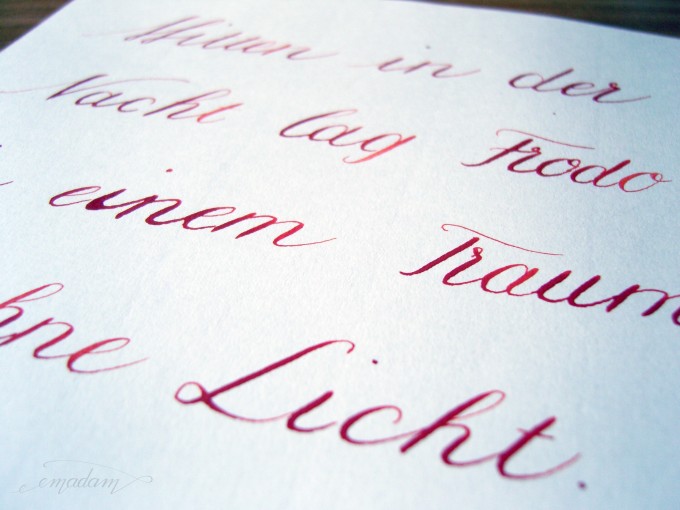 Mitten in der
Nacht lag Frodo
einem Traum
hne Licht.
emadam